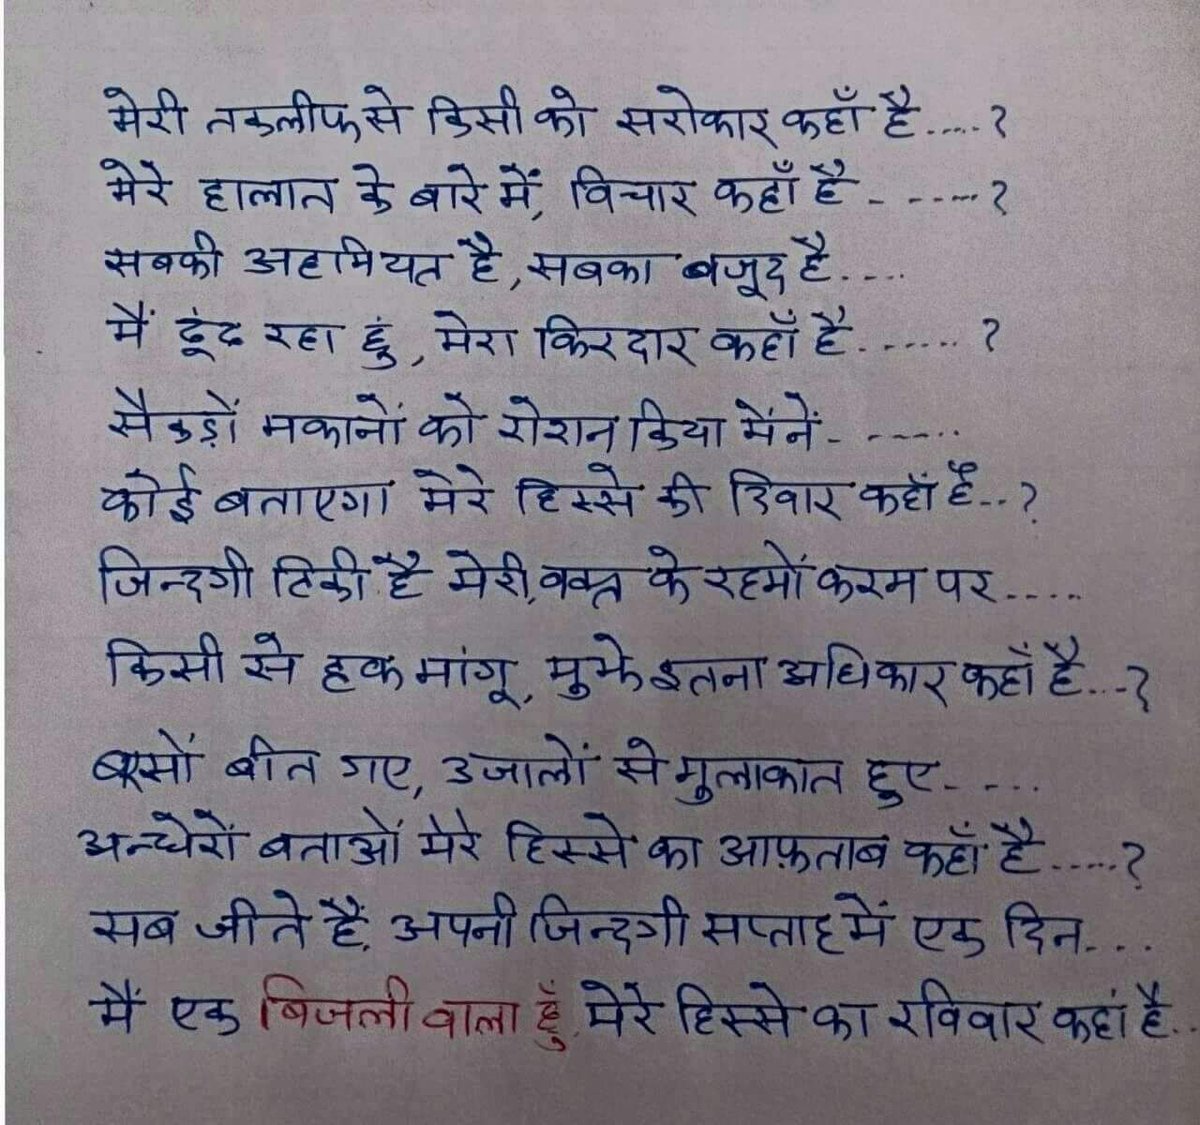 मेरी तकलीफ से किसी को सरोकार कहाँ है.....?
मेरे हालात के बारे में, विचार कहाँ है - -----?
सबकी अहमियत है, सबका बजूद है....
मैं ढूंढ रहा हूं, मेरा किरदार कहाँ है....... ?
सैकड़ों मकानों को रोशन किया मैंनें- ------
कोई बताएगा मेरे हिस्से की दिवार कहाँ है...?
जिन्दगी टिकी है मेरी, वक्त के रहमों करम पर.....
किसी से हक मांगू, मुझे इतना अधिकार कहाँ है...-?
बरसों बीत गए, उजालों से मुलाकात हुए- ...
अन्धेरों बताओं मेरे हिस्से का आफ़ताब कहाँ है.....?
सब जीते हैं, अपनी जिन्दगी सप्ताह में एक दिन...
मैं एक बिजली वाला हूँ, मेरे हिस्से का रविवार कहां है..